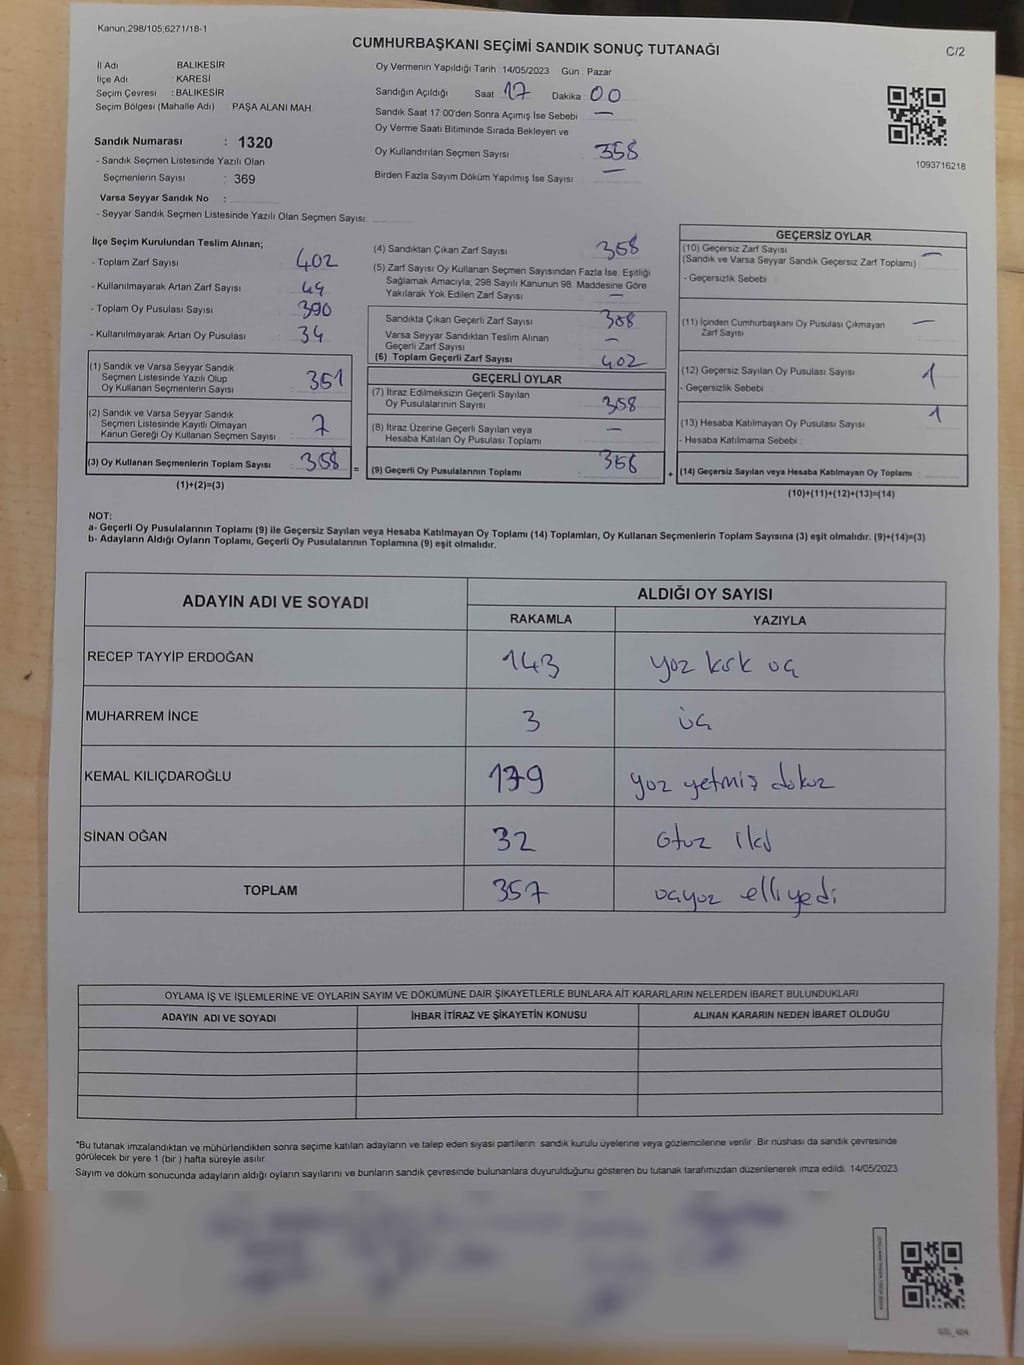 Kanun.298/105;6271/18-1
CUMHURBAŞKANI SEÇİMİ SANDIK SONUÇ TUTANAĞI
C/2
İl Adı BALIKESİR
İlçe Adı : KARESİ
Seçim Çevresi : BALIKESİR
Seçim Bölgesi (Mahalle Adı) : PAŞA ALANI MAH.
Sandık Numarası : 1320
- Sandık Seçmen Listesinde Yazılı Olan
Seçmenlerin Sayısı : 369
Varsa Seyyar Sandık No :
- Seyyar Sandık Seçmen Listesinde Yazılı Olan Seçmen Sayısı:
Oy Vermenin Yapıldığı Tarih : 14/05/2023 Gün : Pazar
Sandığın Açıldığı Saat 17 Dakika 00
Sandık Saat 17:00'den Sonra Açımış İse Sebebi —
Oy Verme Saati Bitiminde Sırada Bekleyen ve
Oy Kullandırılan Seçmen Sayısı 358
Birden Fazla Sayım Döküm Yapılmış İse Sayısı —
1093716218
İlçe Seçim Kurulundan Teslim Alınan;
- Toplam Zarf Sayısı 402
- Kullanılmayarak Artan Zarf Sayısı 44
- Toplam Oy Pusulası Sayısı 390
- Kullanılmayarak Artan Oy Pusulası 34
(1) Sandık ve Varsa Seyyar Sandık
Seçmen Listesinde Yazılı Olup
Oy Kullanan Seçmenlerin Sayısı 351
(2) Sandık ve Varsa Seyyar Sandık
Seçmen Listesinde Kayıtlı Olmayan
Kanun Gereği Oy Kullanan Seçmen Sayısı 7
(3) Oy Kullanan Seçmenlerin Toplam Sayısı 358 =
(1)+(2)=(3)
(4) Sandıktan Çıkan Zarf Sayısı 358
(5) Zarf Sayısı Oy Kullanan Seçmen Sayısından Fazla İse, Eşitliği
Sağlamak Amacıyla; 298 Sayılı Kanunun 98. Maddesine Göre
Yakılarak Yok Edilen Zarf Sayısı —
Sandıkta Çıkan Geçerli Zarf Sayısı 358
Varsa Seyyar Sandıktan Teslim Alınan
Geçerli Zarf Sayısı —
(6) Toplam Geçerli Zarf Sayısı 402
GEÇERLİ OYLAR
(7) İtiraz Edilmeksizin Geçerli Sayılan
Oy Pusulalarının Sayısı 358
(8) İtiraz Üzerine Geçerli Sayılan veya
Hesaba Katılan Oy Pusulası Toplamı —
(9) Geçerli Oy Pusulalarının Toplamı 358 +
GEÇERSİZ OYLAR
(10) Geçersiz Zarf Sayısı —
(Sandık ve Varsa Seyyar Sandık Geçersiz Zarf Toplamı)
- Geçersizlik Sebebi
(11) İçinden Cumhurbaşkanı Oy Pusulası Çıkmayan —
Zarf Sayısı
(12) Geçersiz Sayılan Oy Pusulası Sayısı 1
- Geçersizlik Sebebi
(13) Hesaba Katılmayan Oy Pusulası Sayısı 1
- Hesaba Katılmama Sebebi
(14) Geçersiz Sayılan veya Hesaba Katılmayan Oy Toplamı
(10)+(11)+(12)+(13)=(14)
NOT:
a- Geçerli Oy Pusulalarının Toplamı (9) ile Geçersiz Sayılan veya Hesaba Katılmayan Oy Toplamı (14) Toplamları, Oy Kullanan Seçmenlerin Toplam Sayısına (3) eşit olmalıdır. (9)+(14)=(3)
b- Adayların Aldığı Oyların Toplamı, Geçerli Oy Pusulalarının Toplamına (9) eşit olmalıdır.
ADAYIN ADI VE SOYADI ALDIĞI OY SAYISI
RAKAMLA YAZIYLA
RECEP TAYYİP ERDOĞAN 143 yüz kırk üç
MUHARREM İNCE 3 üç
KEMAL KILIÇDAROĞLU 179 yüz yetmiş dokuz
SİNAN OĞAN 32 otuz iki
TOPLAM 357 üçyüz elliyedi
OYLAMA İŞ VE İŞLEMLERİNE VE OYLARIN SAYIM VE DÖKÜMÜNE DAİR ŞİKAYETLERLE BUNLARA AİT KARARLARIN NELERDEN İBARET BULUNDUKLARI
ADAYIN ADI VE SOYADI İHBAR İTİRAZ VE ŞİKAYETİN KONUSU ALINAN KARARIN NEDEN İBARET OLDUĞU
*Bu tutanak imzalandıktan ve mühürlendikten sonra seçime katılan adayların ve talep eden siyasi partilerin sandık kurulu üyelerine veya gözlemcilerine verilir. Bir nüshası da sandık çevresinde
görülecek bir yere 1 (bir ) hafta süreyle asılır.
Sayım ve döküm sonucunda adayların aldığı oyların sayılarını ve bunların sandık çevresinde bulunanlara duyurulduğunu gösteren bu tutanak tarafımızdan düzenlenerek imza edildi. 14/05/2023